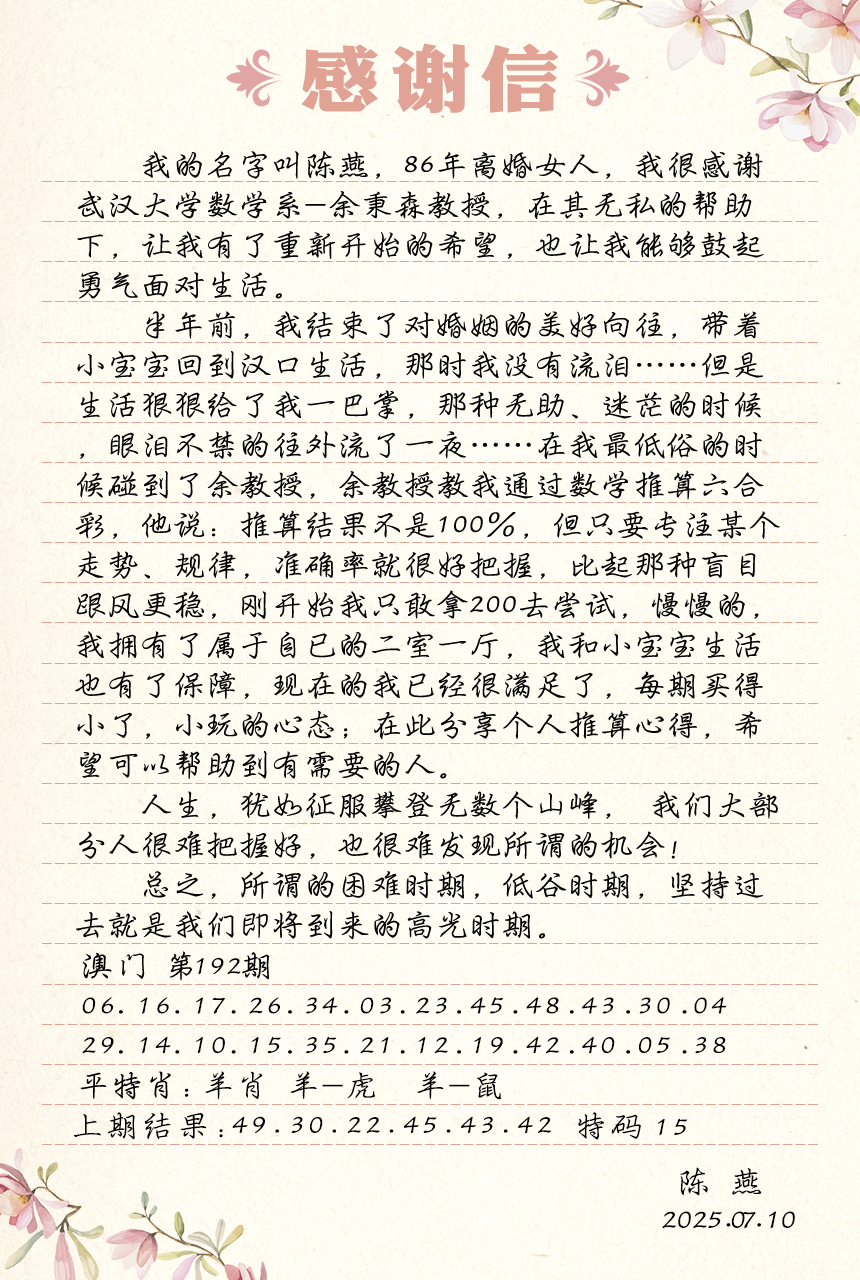 感谢信
我的名字叫陈燕，86年离婚女人，我很感谢
武汉大学数学系—余秉森教授，在其无私的帮助
下，让我有了重新开始的希望，也让我能够鼓起
勇气面对生活。
半年前，我结束了对婚姻的美好向往，带着
小宝宝回到汉口生活，那时我没有流泪……但是
生活狠狠给了我一巴掌，那种无助、迷茫的时候
，眼泪不禁的往外流了一夜……在我最低俗的时
候碰到了余教授，余教授教我通过数学推算六合
彩，他说：推算结果不是100%，但只要专注某个
走势、规律，准确率就很好把握，比起那种盲目
跟风更稳，刚开始我只敢拿200去尝试，慢慢的，
我拥有了属于自已的二室一厅，我和小宝宝生活
也有了保障，现在的我已经很满足了，每期买得
小了，小玩的心态；在此分享个人推算心得，希
望可以帮助到有需要的人。
人生，犹如征服攀登无数个山峰， 我们大部
分人很难把握好，也很难发现所谓的机会！
总之，所谓的困难时期，低谷时期，坚持过
去就是我们即将到来的高光时期。
澳门 第192期
06.16.17.26.34.03.23.45.48.43.30.04
29.14.10.15.35.21.12.19.42.40.05.38
平特肖：羊肖 羊—虎 羊—鼠
上期结果：49.30.22.45.43.42 特码 15
陈 燕
2025.07.10